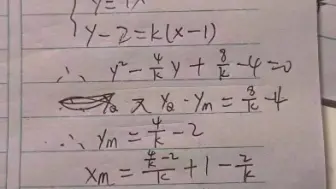 y-2=k(x-1)
∴ y²-4/k y+8/k-4=0
又 y_Q·y_m=8/k-4
∴ y_m=4/k-2
x_m=(4/k-2)/k+1-2/k